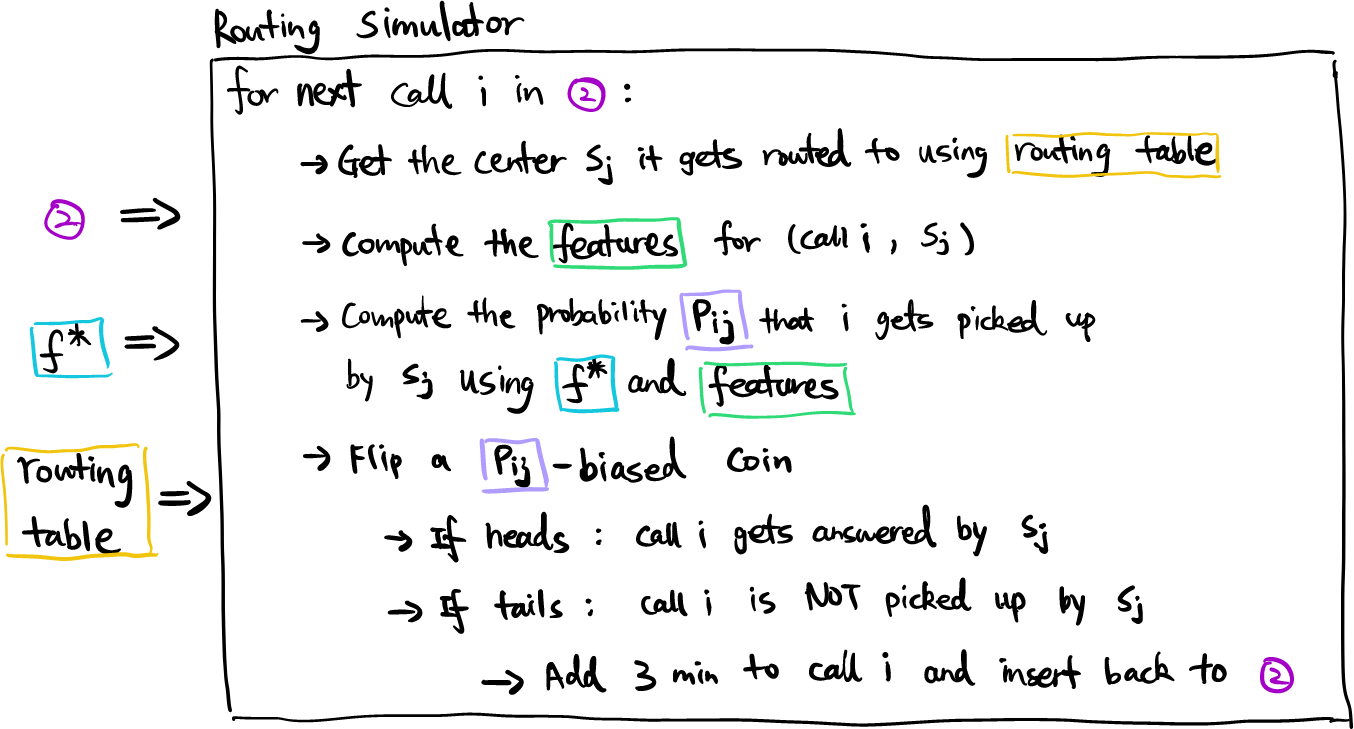 Routing Simulator
for next call i in ② :
→ Get the center Sj it gets routed to using routing table
② ⇒
→ Compute the features for (call i , Sj)
f* ⇒
→ Compute the probability Pij that i gets picked up
by Sj using f* and features
routing
table ⇒
→ Flip a Pij -biased coin
→ If heads : call i gets answered by Sj
→ If tails : call i is NOT picked up by Sj
→ Add 3 min to call i and insert back to ②